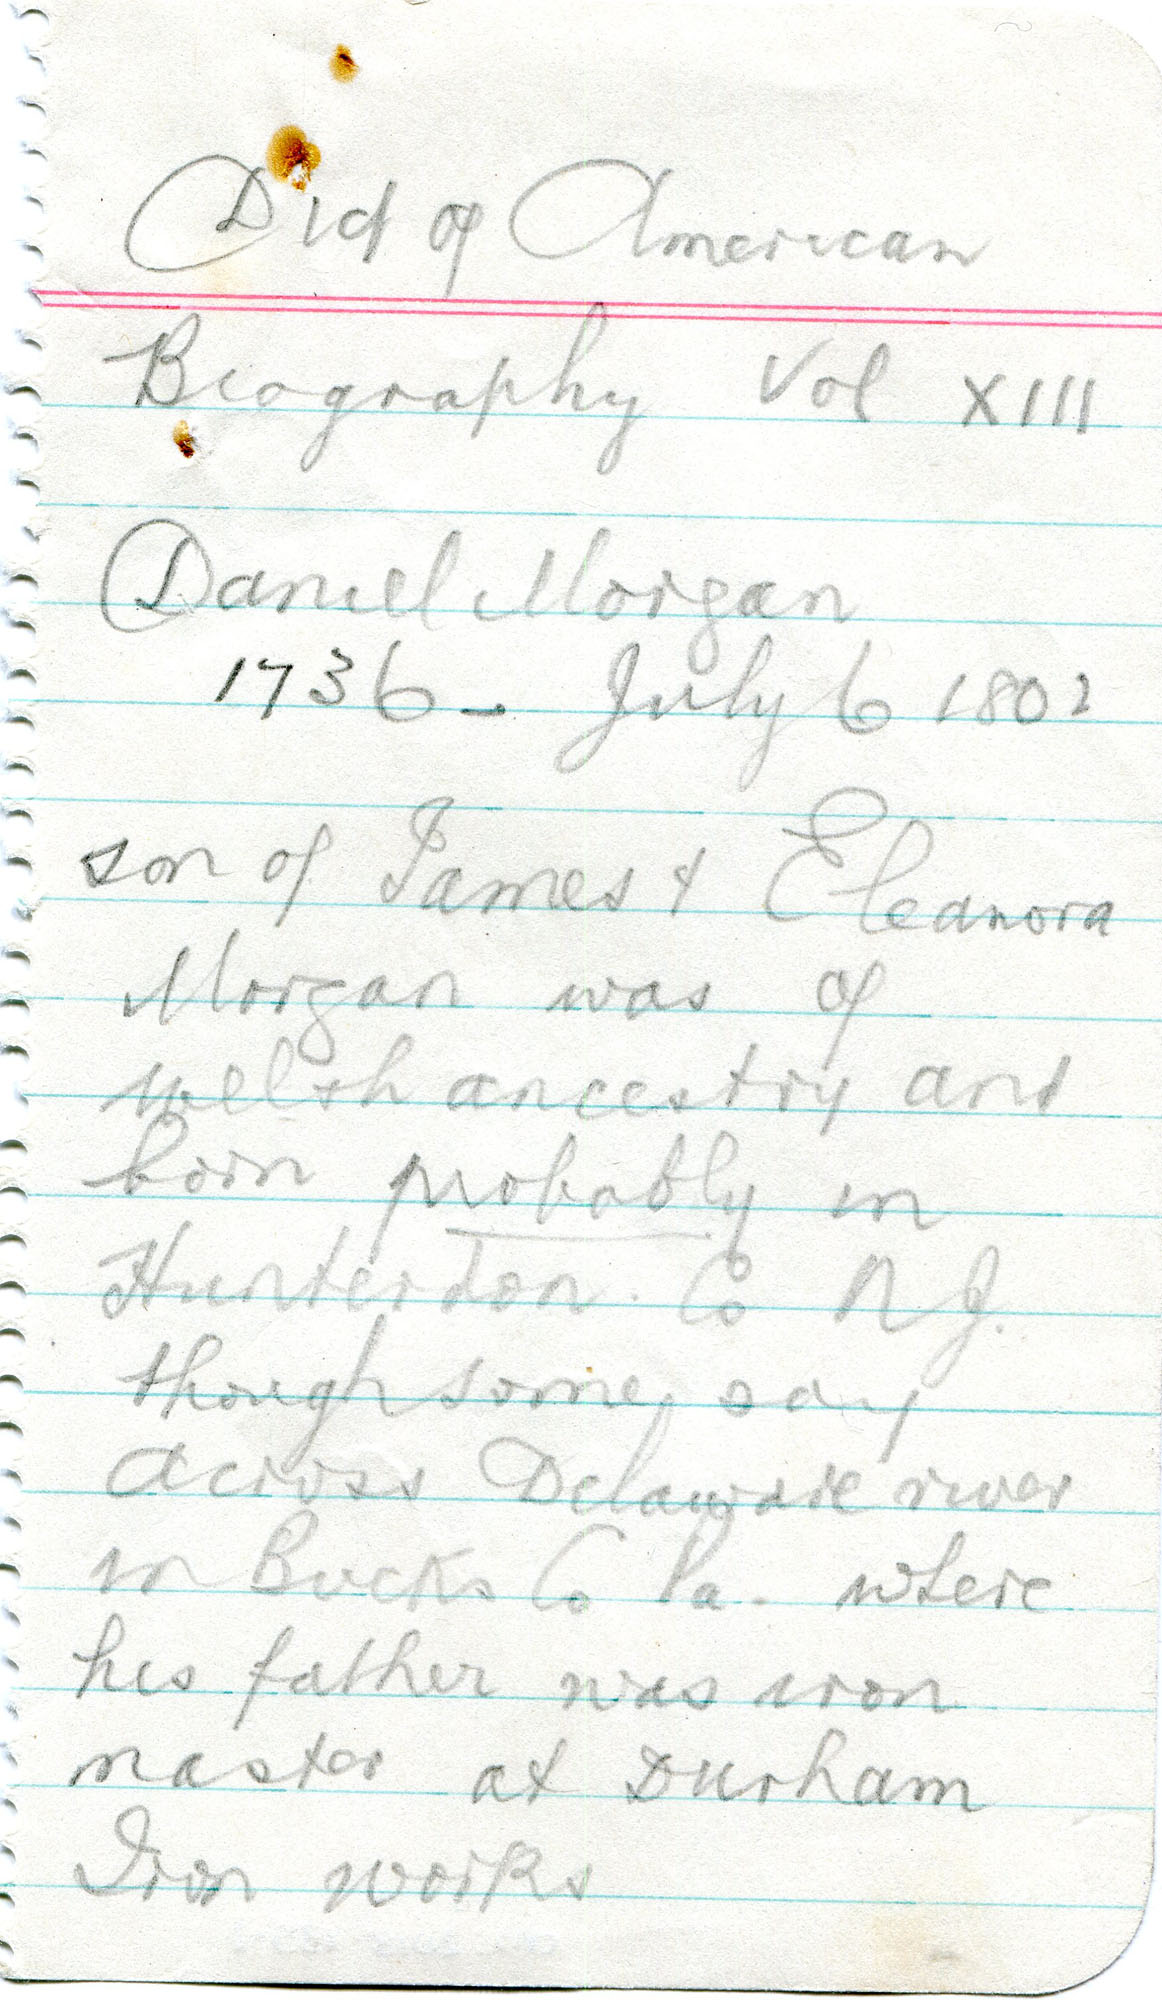 Dict of American
Biography Vol XIII
Daniel Morgan
1736 - July 6 1802
son of James & Eleanora
Morgan was of
welsh ancestry and
born probably in
Hunterdon. Co N J.
though some say
across Delaware river
in Bucks Co Pa. where
his father was iron
master at Durham
Iron works